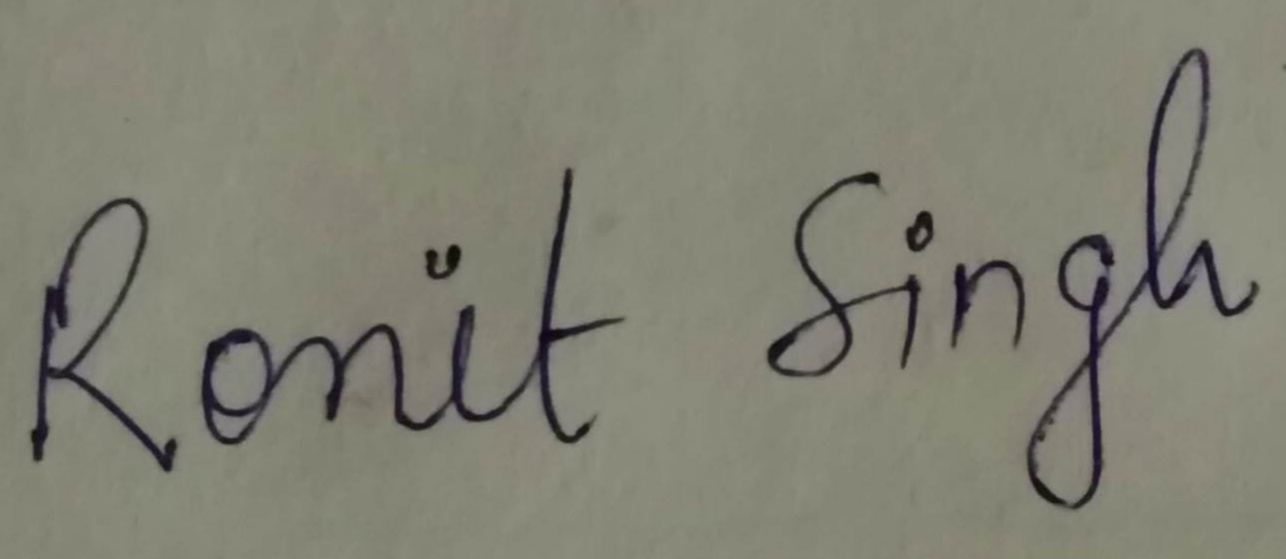 Ronit Singh